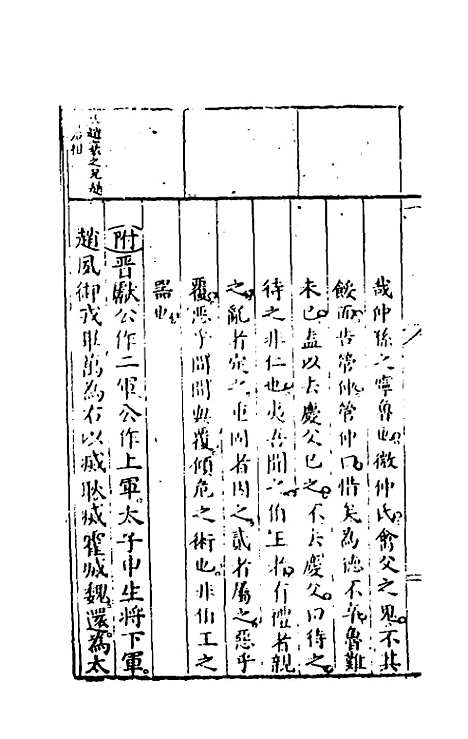 哉仲孫之寧魯也微仲氏禽父之鬼不其
餒而告管仲管仲曰惜矣為德不卒魯難
未已盍以去慶父已之不去慶父曰待之
待之非仁也夷吾聞之伯王者有禮者親
之亂者定之重固者因之貳者屬之惡乎
覆惡乎間間與覆傾危之術也非伯王之
器也
附晉獻公作二軍公作上軍太子申生將下軍
趙夙御戎畢萬為右以滅耿滅霍滅魏還為太
趙衰之兄趙